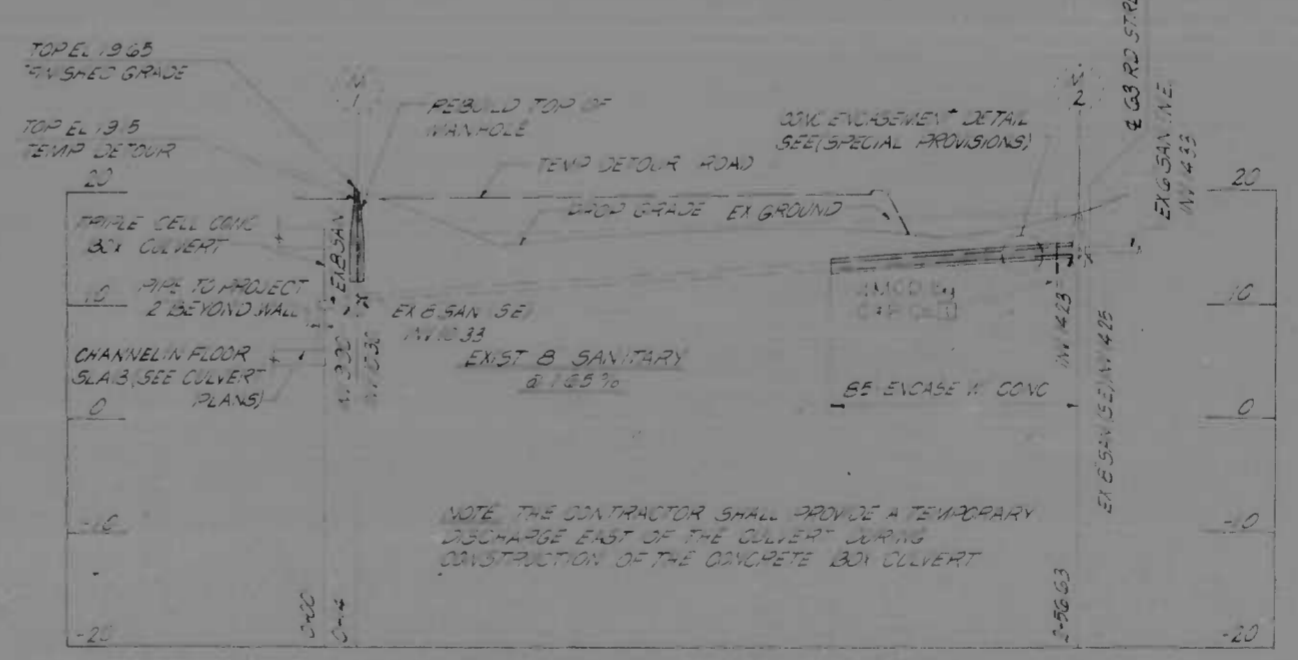 TOP EL 19 65
FINISHED GRADE
TOP EL 19 5
TEMP DETOUR
20
TRIPLE CELL CONC
BOX CULVERT
10
PIPE TO PROJECT
2 BEYOND WALL
CHANNEL IN FLOOR
SLAB (SEE CULVERT
PLANS)
0
-10
-20
EX 8 SAN
1
REBUILD TOP OF
MANHOLE
TEMP DETOUR ROAD
DROP GRADE EX GROUND
EX 8 SAN (SE)
INV 10 33
EXIST 8 SANITARY
@ 1 65 %
CONC ENCASEMENT DETAIL
SEE (SPECIAL PROVISIONS)
2
85 ENCASE IN CONC
INV 4 23
EX 8 SAN (SE) INV 4 25
℄ 63 RD
EX 6 SAN INE
INV 4 33
20
10
0
-10
-20
NOTE THE CONTRACTOR SHALL PROVIDE A TEMPORARY
DISCHARGE EAST OF THE CULVERT DURING
CONSTRUCTION OF THE CONCRETE BOX CULVERT
0+00
0+14
2+56 63